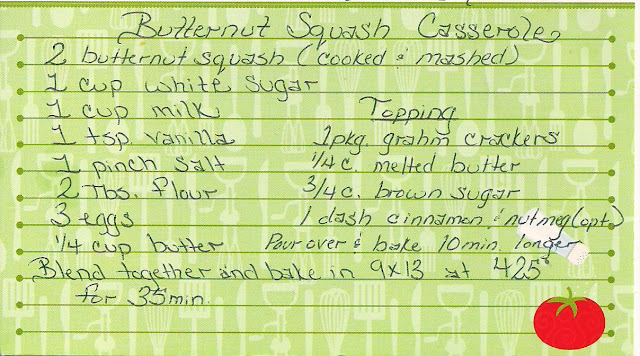 Butternut Squash Casserole
2 butternut squash (cooked & mashed)
1 cup white sugar
1 cup milk
1 tsp. vanilla
1 pinch salt
2 Tbs. flour
3 eggs
1/4 cup butter
Topping
1 pkg. grahm crackers
1/4 c. melted butter
3/4 c. brown sugar
1 dash cinnamon & nutmeg (opt.)
Pour over & bake 10 min. longer
Blend together and bake in 9x13 at 425°
for 35 min.